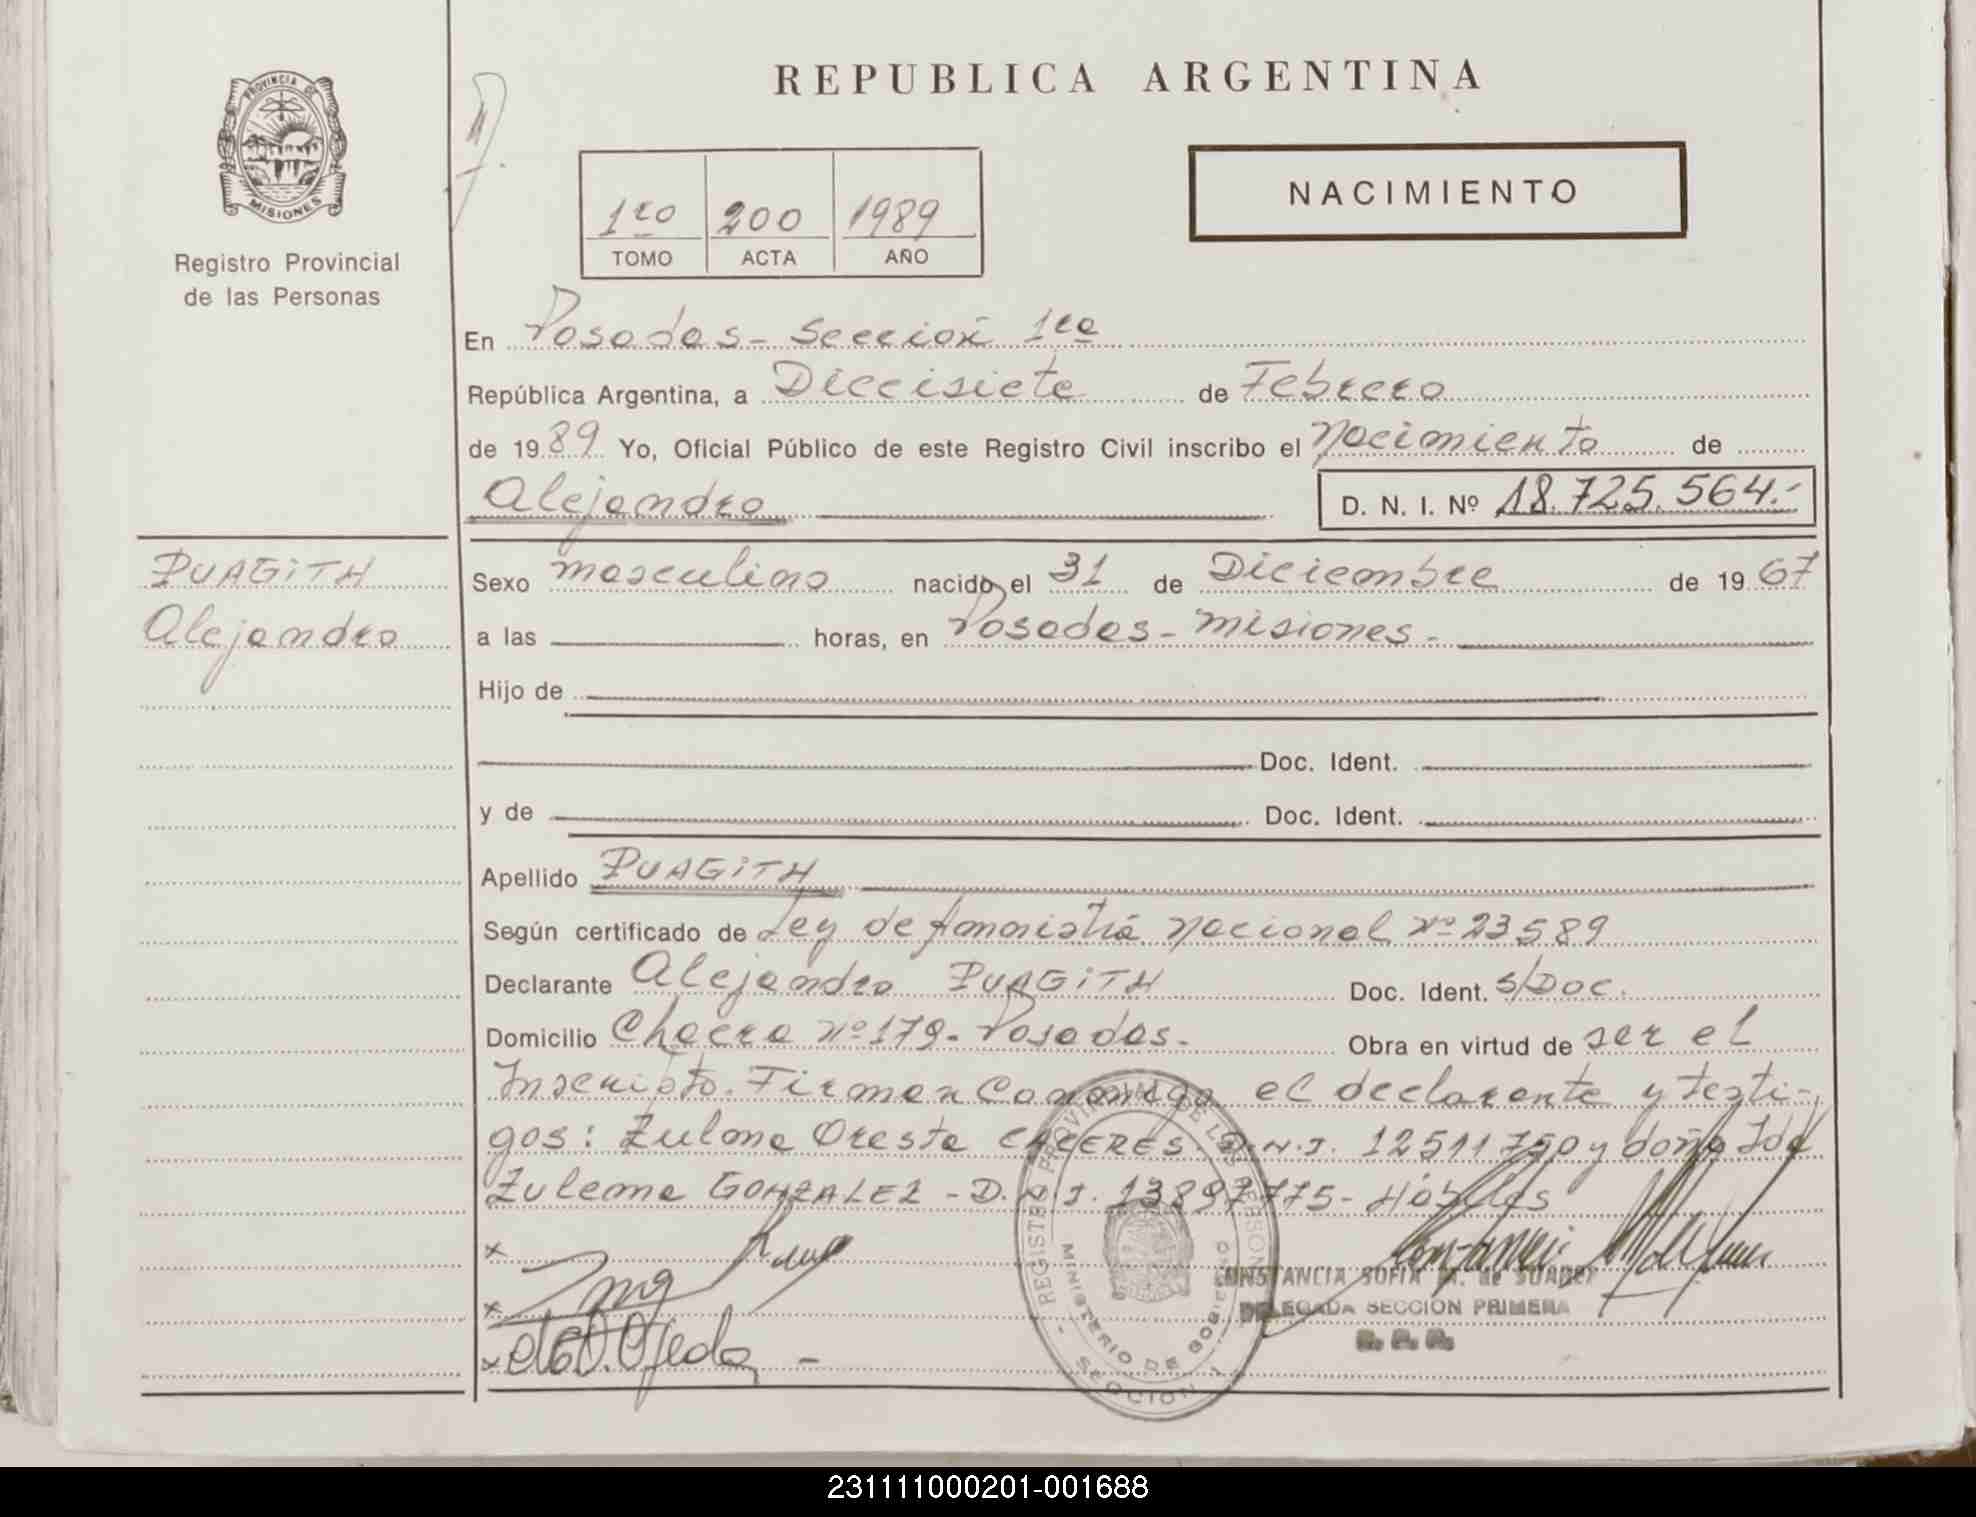 PROVINCIA DE
MISIONES
Registro Provincial
de las Personas
REPUBLICA ARGENTINA
NACIMIENTO
1ro 200 1989
TOMO ACTA AÑO
En Posadas - Sección 1ra
República Argentina, a Diecisiete de Febrero
de 1989 Yo, Oficial Público de este Registro Civil inscribo el Nacimiento de
Alejandro D. N. I. Nº 18.725.564.-
PUAGiTH
Alejandro
Sexo masculino nacido el 31 de Diciembre de 1967
a las horas, en Posadas - Misiones -
Hijo de
Doc. Ident.
y de Doc. Ident.
Apellido PUAGiTH
Según certificado de Ley de Amnistía Nacional Nº 23589
Declarante Alejandro PUAGiTH Doc. Ident. S/Doc.
Domicilio Chacra Nº 179 - Posadas - Obra en virtud de ser el
Inscripto. Firman Conmigo el declarante y testi-
gos: Zulma Oresta CACERES D.N.I. 12511750 y doña Ida
Zulema GONZALEZ - D.N.I. 13897775 - Hábiles
x
x
x Ojeda -
REGISTRO PROVINCIAL DE LAS PERSONAS
MINISTERIO DE GOBIERNO
SECCION 1
CONSTANCIA SOFIA M. de SUAREZ
DELEGADA SECCION PRIMERA
231111000201-001688